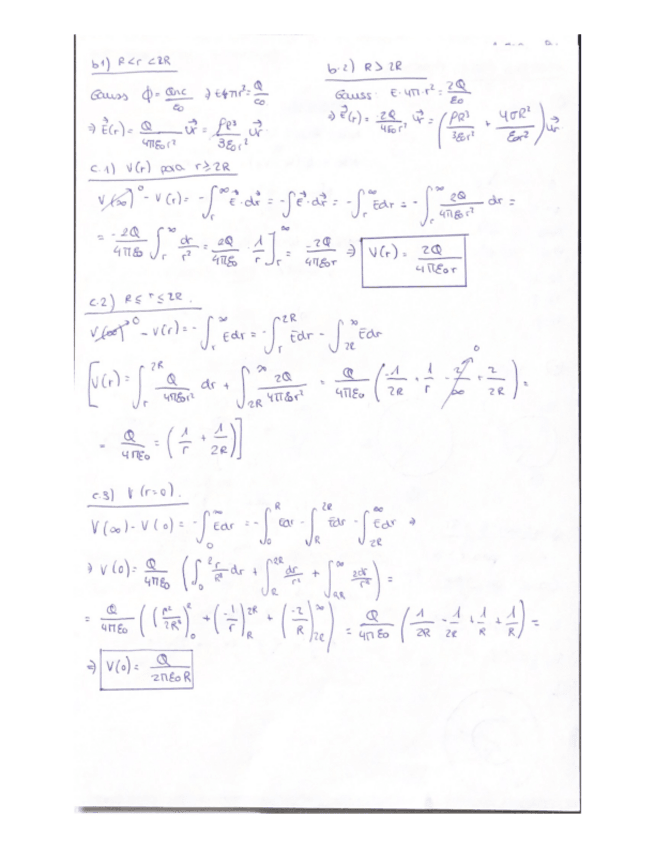 b.1) R<r<2R
Gauss ϕ = Qenc/ε0 → E4πr² = Q/ε0
⇒ E⃗(r) = Q/4πε0r² u⃗r = ρR³/3ε0r² u⃗r
b.2) R> 2R
Gauss: E·4π·r² = 2Q/ε0
⇒ E⃗(r) = 2Q/4ε0r² u⃗r = (ρR³/3ε0r² + 4σR²/ε0r²) u⃗r
c.1) V(r) para r≥2R
V(∞)⁰ - V(r) = -∫r^∞ E⃗·dr⃗ = -∫E⃗·dr⃗ = -∫r^∞ Edr = -∫r^∞ 2Q/4πε0r² dr =
= -2Q/4πε0 ∫r^∞ dr/r² = 2Q/4πε0 · 1/r]r^∞ = -2Q/4πε0r ⇒ V(r) = 2Q/4πε0r
c.2) R≤r≤2R.
V(∞)⁰ - V(r) = -∫r^∞ Edr = -∫r^2R Edr - ∫2R^∞ Edr
[V(r) = ∫r^2R Q/4πε0r² dr + ∫2R^∞ 2Q/4πε0r² = Q/4πε0 (-1/2R + 1/r - 2/∞⁰ + 2/2R) =
= Q/4πε0 = (1/r + 1/2R)]
c.3) V(r=0).
V(∞) - V(0) = -∫0^∞ Edr = -∫0^R Edr - ∫R^2R Edr - ∫2R^∞ Edr ⇒
⇒ V(0) = Q/4πε0 (∫0^2r r/R³ dr + ∫R^2R dr/r² + ∫2R^∞ 2dr/r²) =
= Q/4πε0 ((r²/2R³)0^R + (-1/r)R^2R + (-2/R)2R^∞) = Q/4πε0 (1/2R - 1/2R + 1/R + 1/R) =
⇒ V(0) = Q/2πε0R